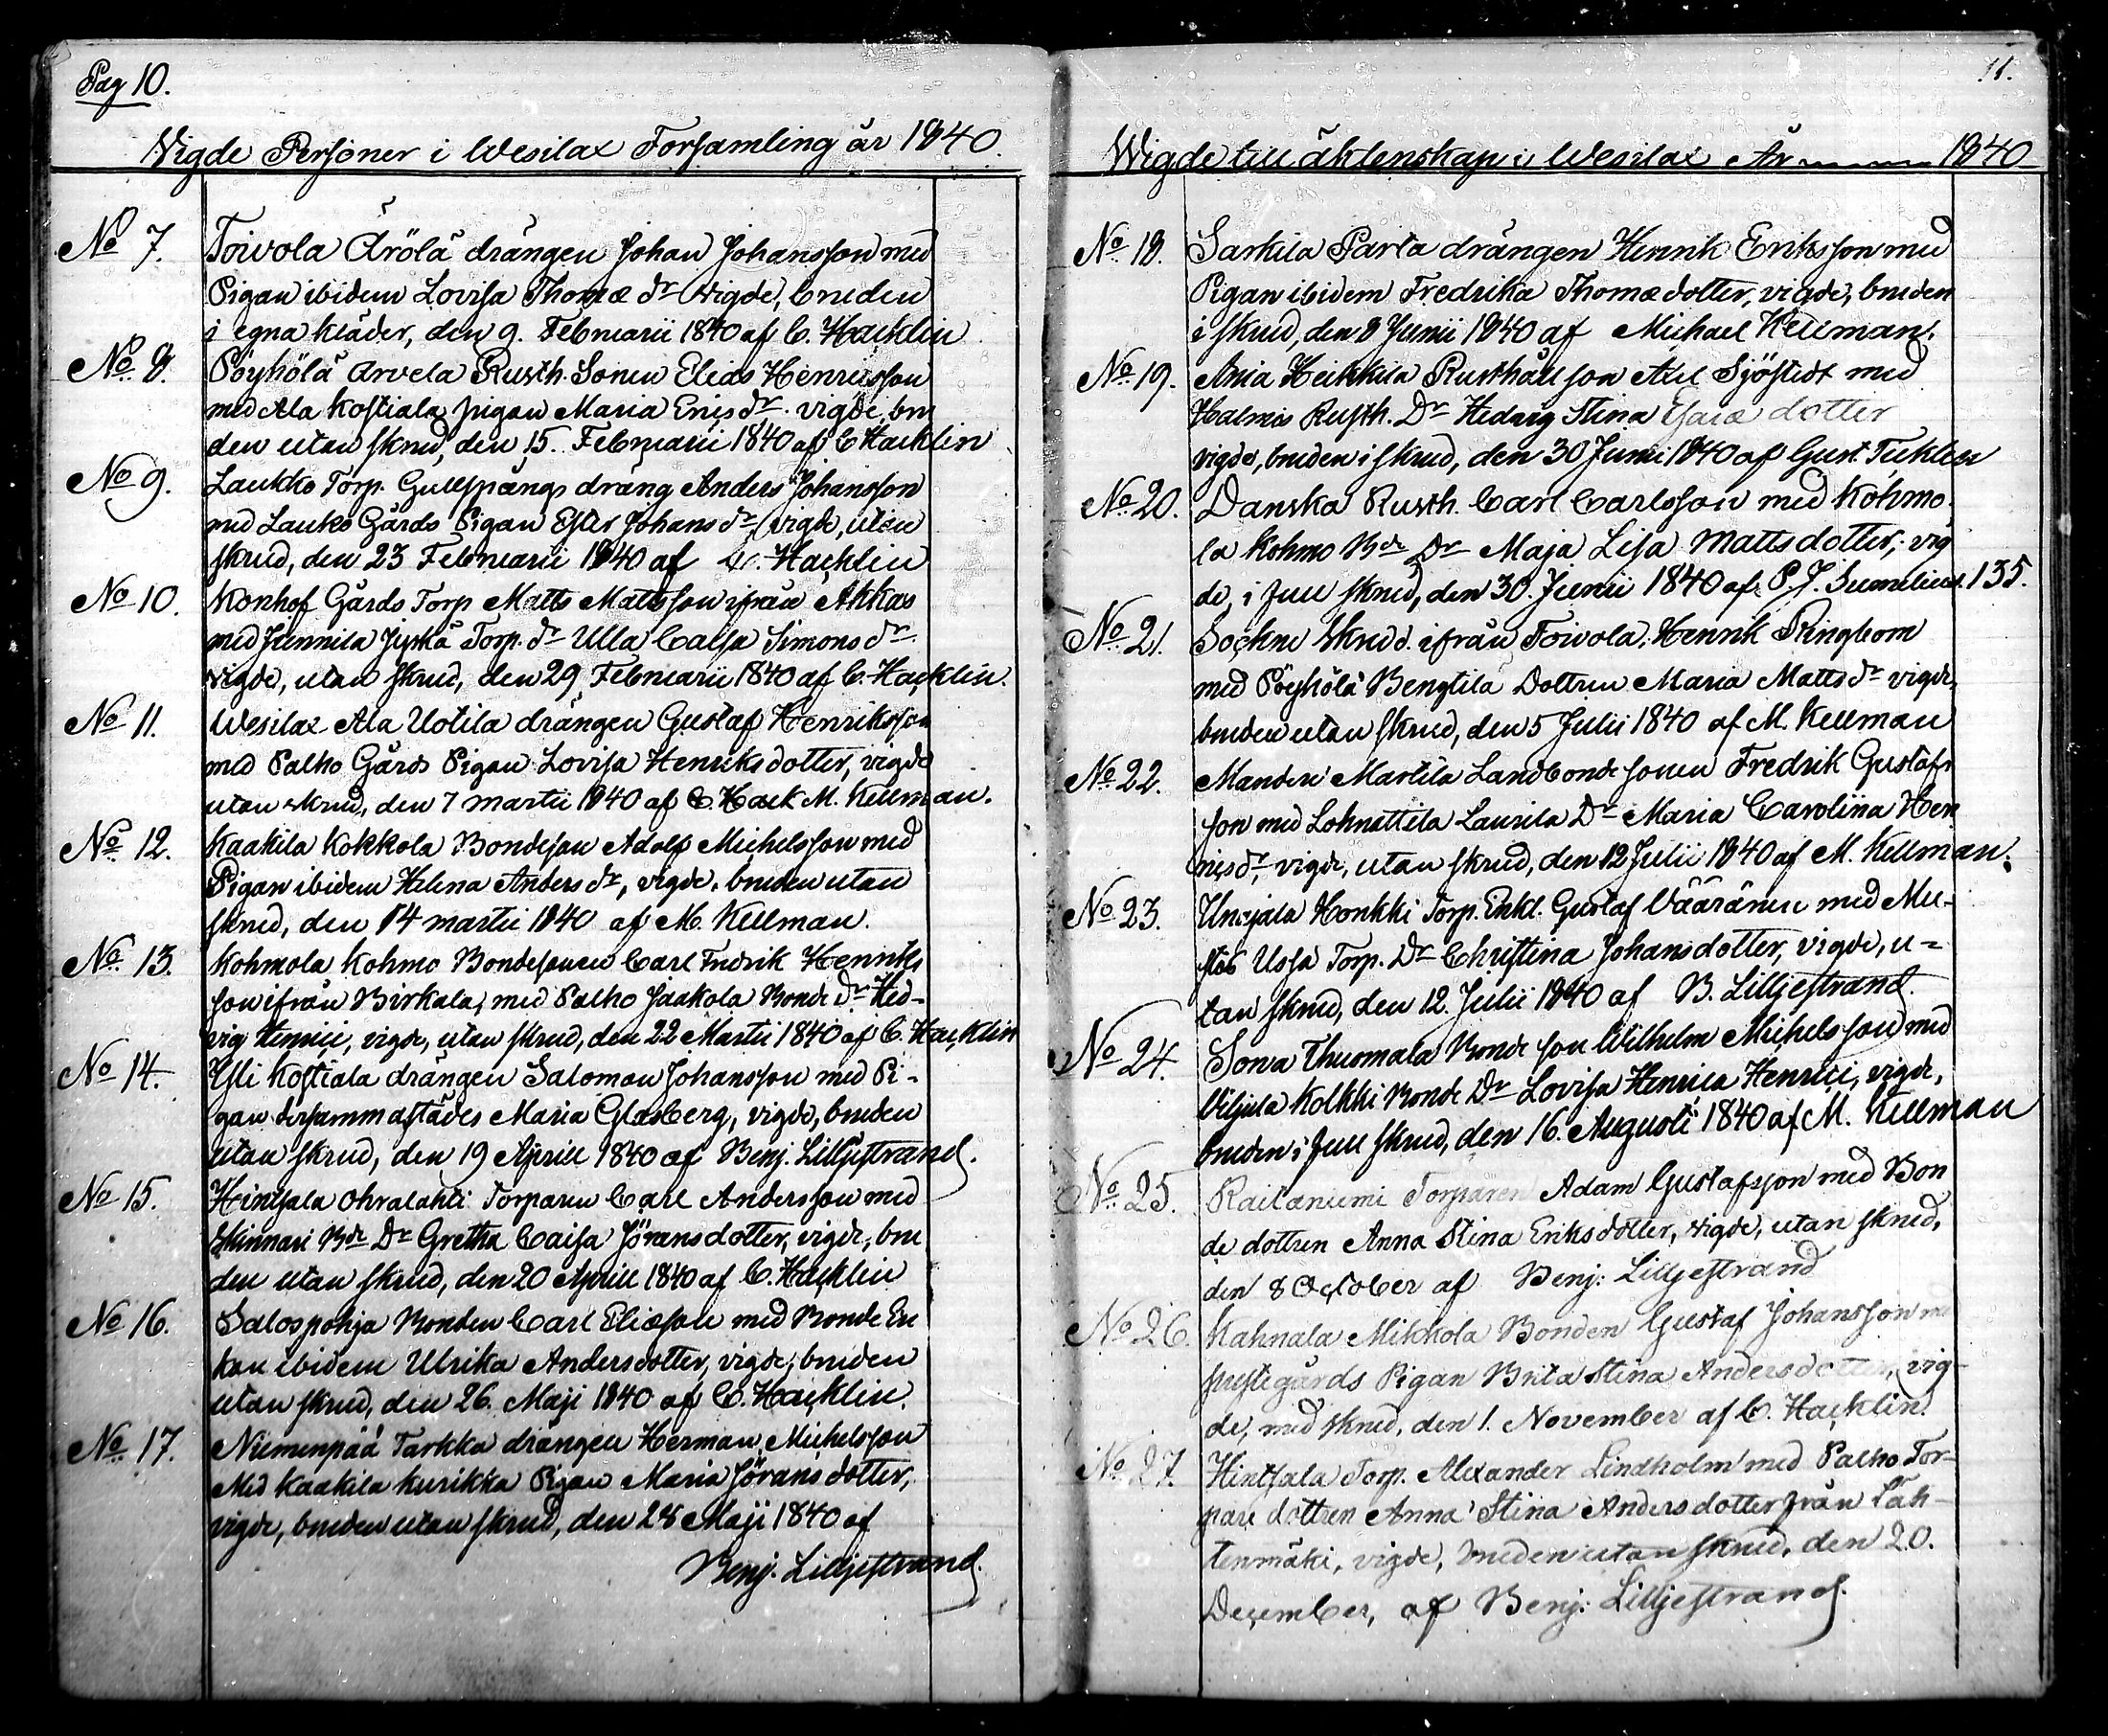 Pag 10.
Vigde Personer i Wesilax Forsamling år 1840.
No 7. Toivola Ärölä drängen Johan Johansson med
Pigan ibidem Lovisa Thomæ dr vigde, bruden
i egna kläder, den 9. Februarii 1840 af C. Hacklin
No 8. Pöyhölä Arvela Rusth. Sonen Elias Henricsson
med Ala Kostiala pigan Maria Erics dr. vigde, bru
den utan skrud, den 15. Februarii 1840 af C Hacklin
No 9. Laukko Torp. Gullspångs dräng Anders Johansson
med Lauko Gårds Pigan Ester Johans dr vigde, utan
skrud, den 23 Februarii 1840 af C. Hacklin
No 10. Konhof Gårds Torp Matts Mattsson ifrån Ahkas
med Junnila Jyskä Torp. dr Ulla Caisa Simons dr.
vigde, utan skrud, den 29 Februarii 1840 af C. Hacklin.
No 11. Wesilax Ala Uotila drängen Gustaf Henriksson
med Palho Gårds Pigan Lovisa Henriksdotter, vigde
utan skrud, den 7 martii 1840 af C. Hack M. Kellman.
No 12. Kaakila Kokkola Bondeson Adolf Michelsson med
Pigan ibidem Helena Anders dr, vigde, bruden utan
skrud, den 14 martii 1840 af M. Kellman.
No 13. Kohmola Kohmo Bondesonen Carl Fredrik Henriks
son ifrån Birkala, med Palho Jaakola Bonde Dr Hed-
vig Henrici, vigde, utan skrud, den 22 Martii 1840 af C. Hacklin
No 14. Yli Kostiala drängen Salomon Johansson med Pi-
gan dersammastädes Maria Glasberg, vigde, bruden
utan skrud, den 19 Aprill 1840 af Benj. Lilljestrand.
No 15. Hinsala Ohralahti Torparen Carl Andersson med
Skinnari Bde Dr Gretha Caisa Jöransdotter, vigde, bru
den utan skrud, den 20 Aprill 1840 af C. Hacklin
No 16. Salospohja Bonden Carl Eliæson med Bonde En
kan ibidem Ulrika Andersdotter, vigde, bruden
utan skrud, den 26. Maji 1840 af C. Hacklin.
No 17. Niemenpää Tarkka drängen Herman Michelsson
Med Kaakila Kurikka Pigan Maria Jörans dotter,
vigde, bruden utan skrud, den 28 Maji 1840 af
Benj. Lilljestrand.
11.
Wigde till äktenskap i Wesilax År 1840
No 18. Sarkila Parta drängen Henrik Eriksson med
Pigan ibidem Fredrika Thomædotter, vigde, bruden
i skrud, den 8 Junii 1840 af Michael Kellman.
No 19. Ania Heikkila Rusthåll son Axel Sjöstedt med
Halmis Rusth. Dr Hedvig Stina Esaiæ dotter
vigde, bruden i skrud, den 30 Junii 1840 af Gust. Ticklen
No 20. Danska Rusth. Carl Carlsson med Kohmo
la Kohmo Bde Dr Maja Lisa Mattsdotter, vig
de, i full skrud, den 30. Junii 1840 af P. J. Sumelius. 135.
No 21. Sockne Skrädd. ifrån Toivola, Henrik Ringbom
med Pöyhölä Bengtilä Dottren Maria Matts dr vigde,
bruden utan skrud, den 5 Julii 1840 af M. Kellman
No 22. Mandere Martila Landbonde sonen Fredrik Gustafs
son med Lohnattila Laurila Dr Maria Carolina Hen
rics dr, vigde, utan skrud, den 12 Julii 1840 af M. Kellman.
No 23. Honkki Torp. Enkl. Gustaf Vääränen med Mu-
Torp. Dr Christina Johansdotter, vigde, u-
tan skrud, den 12. Julii 1840 af B. Lilljestrand.
No 24. Sorva Thuomala Bonde son Wilhelm Michelsson med
Viljula Kolkki Bonde Dr Lovisa Henrica Henrici, vigde,
bruden i full skrud, den 16. Augusti 1840 af M. Kellman
No 25. Raitaniemi Torparen Adam Gustafsson med Bon
de dottren Anna Stina Eriksdotter, vigde, utan skrud,
den 8 October af Benj: Lilljestrand
No 26. Kahnala Mikkola Bonden Gustaf Johansson me
prestegårds Pigan Brita Stina Andersdotter, vig-
de, med skrud, den 1. November af C. Hacklin.
No 27. Hinsala Torp. Alexander Lindholm med Palho Tor-
pare dottren Anna Stina Andersdotter från Lah-
tenmäki, vigde, bruden utan skrud, den 20.
December, af Benj: Lilljestrand.